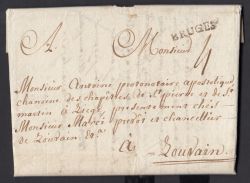 A Monsieur
BRUGES
4
Monsieur Antoine protonotaire apostolique
chanoine des chapitres de St pierre et de St
martin à Liege, presentement chés
Monsieur et chancellier
de Louvain &a
à
Louvain.